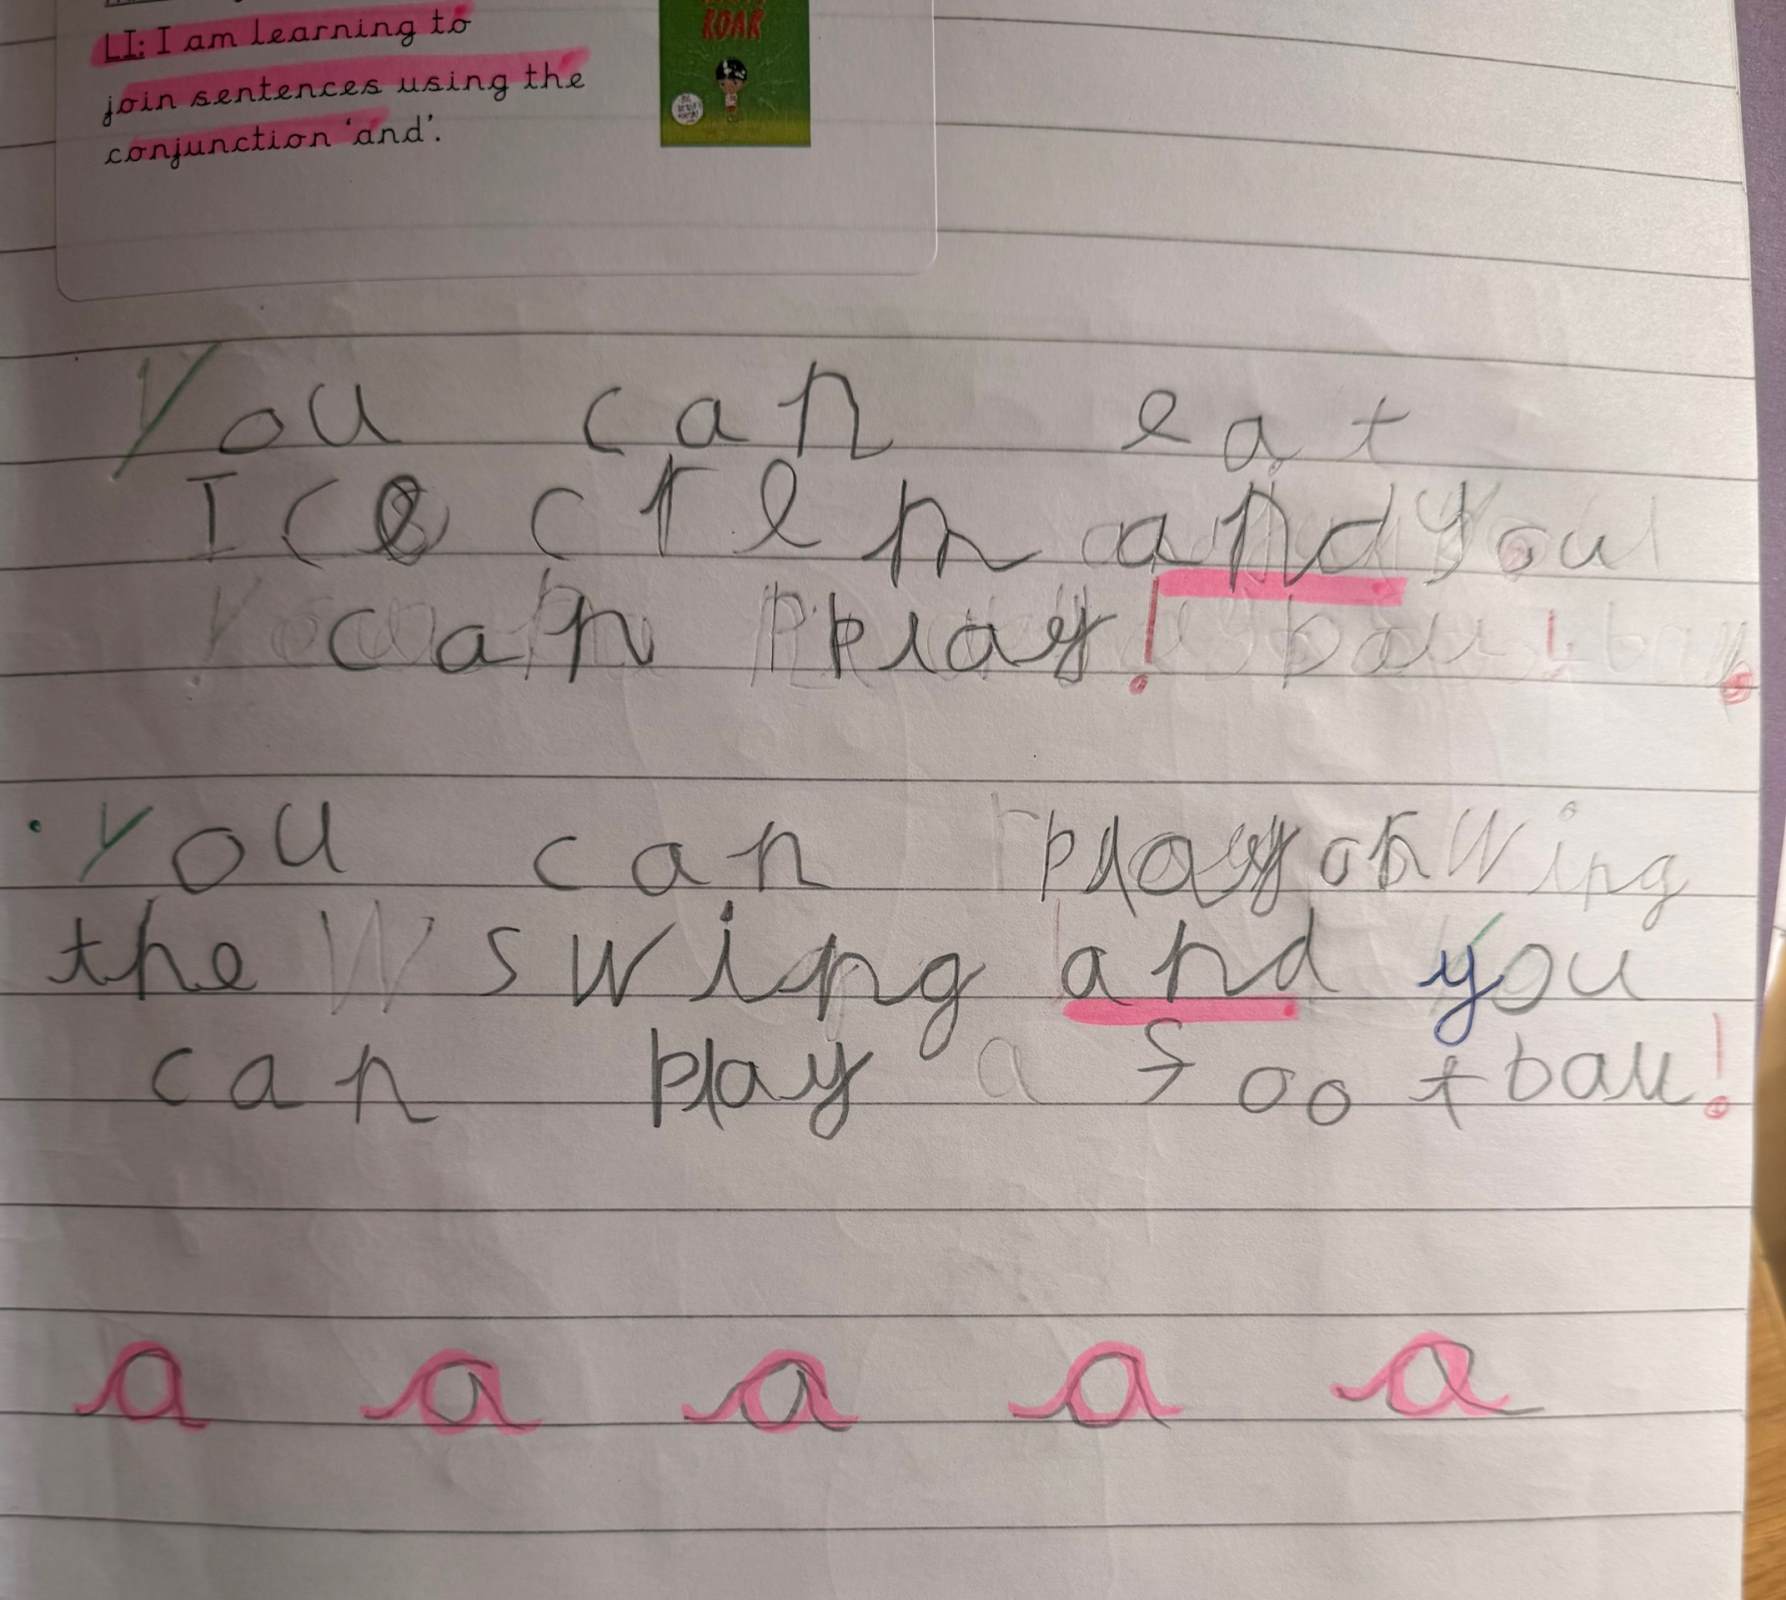 LI: I am learning to
join sentences using the
conjunction 'and'.
ROAR
You can eat
Ice crem and you
can play!
You can play on
the swing and you
can play football!
a a a a a